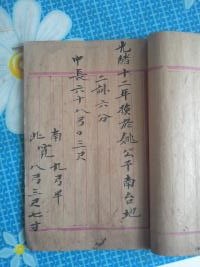 光緒十二年積善姚公平南台地
二訓六分
中長六十八弓〇三尺
南九弓半
北寬八弓三尺七寸